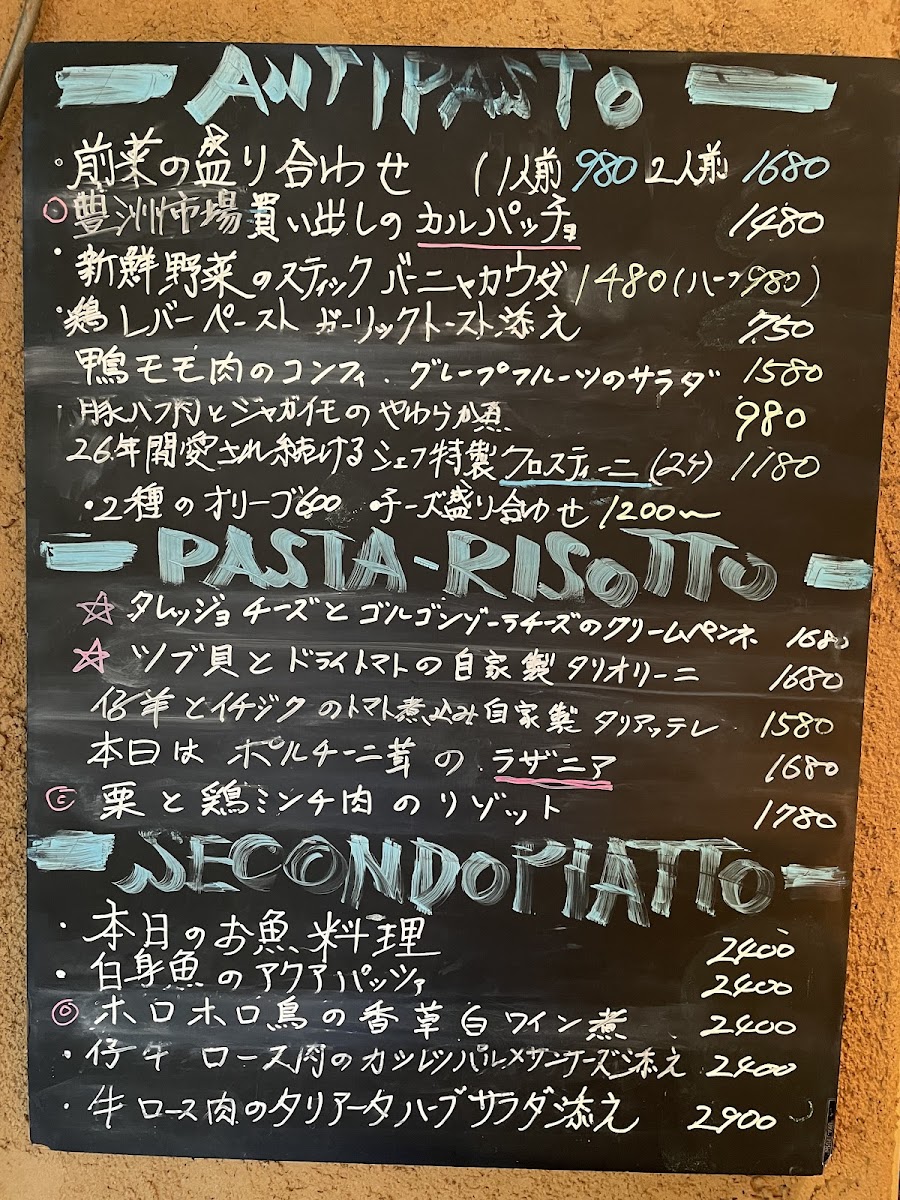 ANTIPASTO
・前菜の盛り合わせ (1人前 980 2人前 1680
◎豊洲市場買い出しの カルパッチョ 1480
・新鮮野菜のスティック バーニャカウダ 1480 (ハーフ980)
・鶏レバーペースト ガーリックトースト添え 750
鴨モモ肉のコンフィ.グレープフルーツのサラダ 1580
豚ハラ肉とジャガイモのやわらか煮 980
26年間愛され続けるシェフ特製クロスティーニ (2ケ) 1180
・2種のオリーブ600 ・チーズ盛り合わせ 1200〜
PASTA-RISOTTO
☆ タレッジョチーズとゴルゴンゾーラチーズのクリームペンネ 1680
☆ ツブ貝とドライトマトの自家製タリオリーニ 1680
仔羊とイチジクのトマト煮込み自家製 タリアッテレ 1580
本日は ポルチーニ茸の ラザニア 1680
◎ 栗と鶏ミンチ肉のリゾット 1780
SECONDOPIATTO
・本日のお魚料理 2400
・白身魚のアクアパッツァ 2400
◎ ホロホロ鳥の香草白ワイン煮 2400
・仔牛 ロース肉のカツレツパルメザンチーズ添え 2400
・牛ロース肉のタリアータハーブサラダ添え 2900